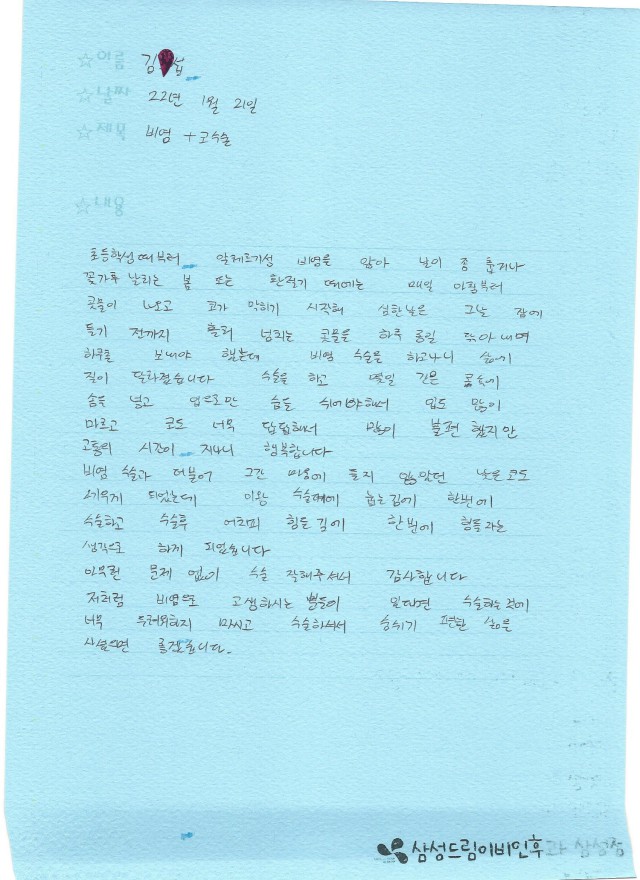 ☆이름 김 섭
☆날짜 22년 1월 21일
☆제목 비염 + 코수술
☆내용
초등학생때부터 알레르기성 비염을 앓아 날이 좀 춥거나
꽃가루 날리는 봄 또는 환절기 때에는 매일 아침부터
콧물이 나오고 코가 막히기 시작해 심한날은 그날 잠에
들기 전까지 흘러 넘치는 콧물을 하루 종일 닦아내며
하루를 보내야 했는데 비염 수술을 하고나니 삶에
질이 달라졌습니다 수술을 하고 몇일 간은 콧속에
솜을 넣고 입으로만 숨을 쉬어야해서 입도 많이
마르고 코도 너무 답답해서 많이 불편 할지만
고통의 시간이 지나니 행복합니다
비염 수술과 더불어 그간 마음에 들지 않았던 낮은코도
세우게 되었는데 이왕 수술대에 눕는김에 한번에
수술하고 수술후 어차피 힘든김에 한번에 힘들자는
생각으로 하게 되었습니다
아무런 문제 없이 수술 잘해주셔서 감사합니다
저처럼 비염으로 고생하시는 분들이 있다면 수술하는것에
너무 두려워하지 마시고 수술하셔서 숨쉬기 편한 삶을
사셨으면 좋겠습니다.
삼성드림이비인후과 삼성점